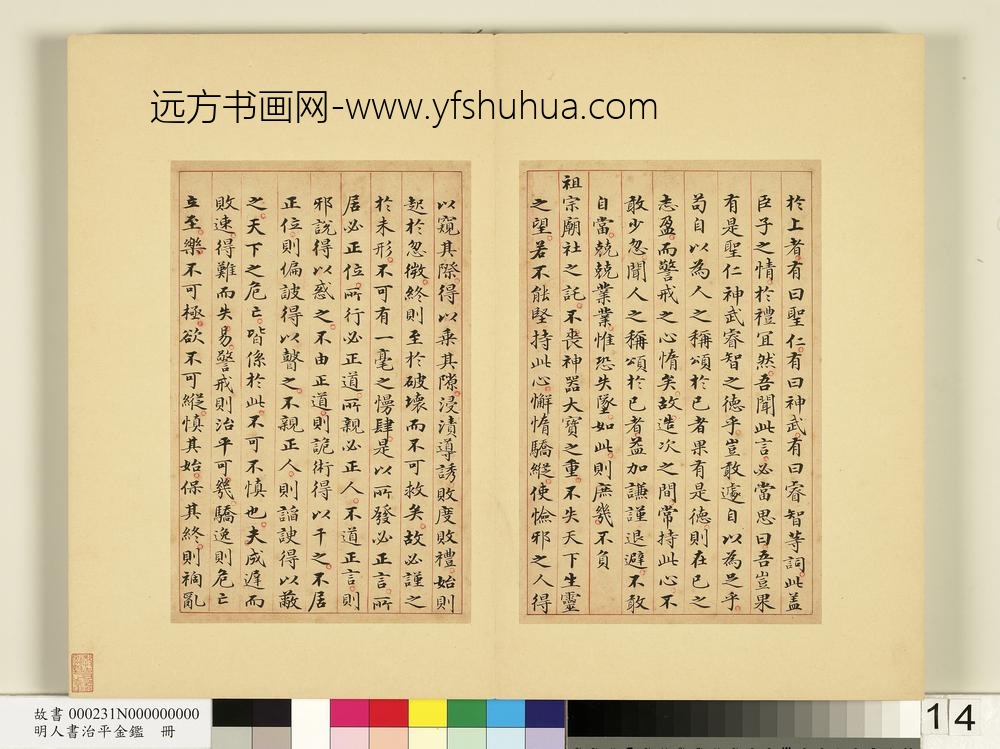 远方书画网-www.yfshuhua.com
於上者有曰聖仁有曰神武有曰睿智等詞此盖
臣子之情於禮宜然吾聞此言必當思曰吾豈果
有是聖仁神武睿智之德乎豈敢遽自以為足乎
苟自以為人之稱頌於己者果有是德則在己之
志盈而警戒之心惰矣故造次之間常持此心不
敢少忽聞人之稱頌於己者益加謙謹退避不敢
自當兢兢業業惟恐失墜如此則庶幾不負
祖宗廟社之託不喪神器大寶之重不失天下生靈
之望若不能堅持此心懈惰驕縱使憸邪之人得
以窺其際得以乗其隙浸漬導誘敗度敗禮始則
起於忽微終則至於破壞而不可救矣故必謹之
於未形不可有一毫之慢肆是以所發必正言所
居必正位所行必正道所親必正人不道正言則
邪說得以惑之不由正道則詭術得以干之不居
正位則偏詖得以瞽之不親正人則謟諛得以蔽
之天下之危亡皆係於此不可不慎也夫成遲而
敗速得難而失易警戒則治平可幾驕逸則危亡
立至樂不可極欲不可縱慎其始保其終則禍亂
故書 000231N000000000
明人書治平金鑑 冊
14